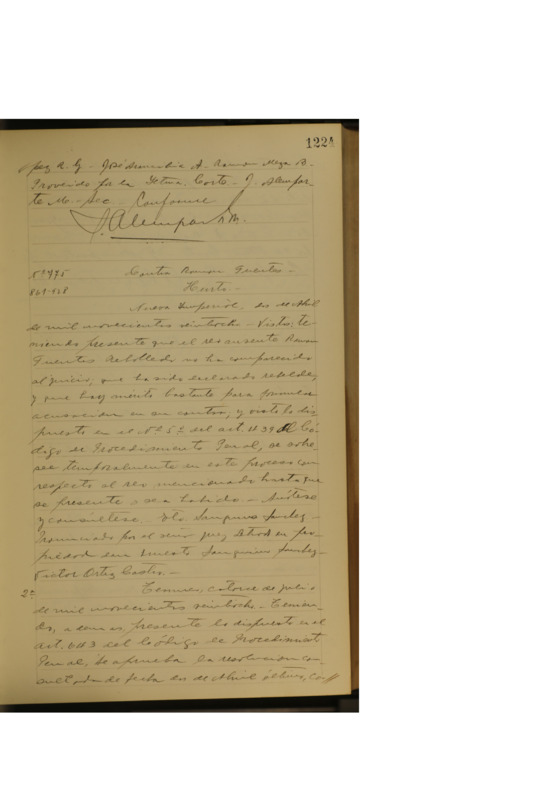 1224
pez R. G. - José Arancibia A. - Ramon Meza B.
Proveido por la Iltma. Corte - J. Alempar-
te M. - Sec - Conforme
J. Alempar M.
Nº 775 Contra Ramon Fuentes -
841-528 Hurto -
Nueva Imperial, de Abril
de mil novecientos veintiocho - Visto: te-
niendo presente que el reo ausente Ramon
Fuentes Rebolledo no ha comparecido
al juicio, que ha sido declarado rebelde,
y que hay mérito bastante para formular
acusacion en su contra, y visto lo dis-
puesto en el Nº 5º del art. 439 del Có-
digo de Procedimiento Penal, se sobre-
see temporalmente en este proceso con
respecto al reo mencionado hasta que
se presente o sea habido. - Anótese
y consúltese.
Pronunciado por el señor juez letrado en pro-
piedad don
Victor Ortiz Castro. -
2º Temuco, catorce de julio
de mil novecientos veintiocho - Tenien-
do, ademas, presente lo dispuesto en el
art. 443 del Código de Procedimiento
Penal, se aprueba la resolucion con-
sultada de fecha de Abril último,